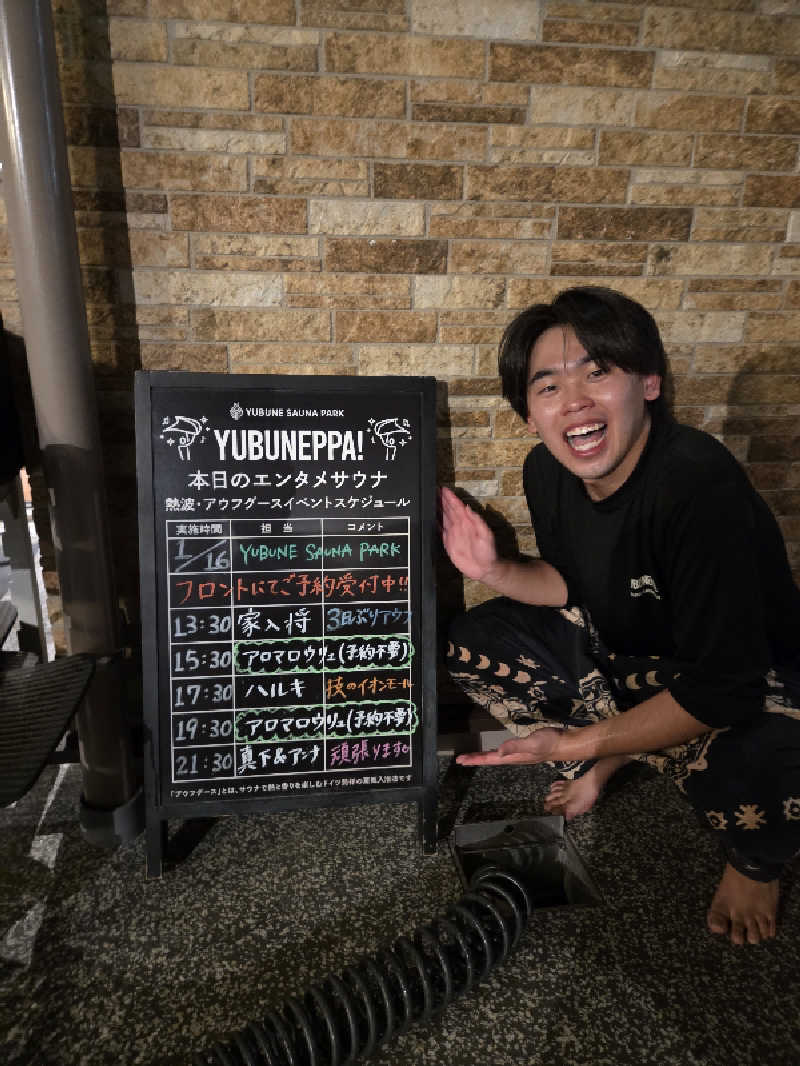 YUBUNE SAUNA PARK
YUBUNEPPA!
本日のエンタメサウナ
熱波・アウフグースイベントスケジュール
実施時間 担当 コメント
1/16 YUBUNE SAUNA PARK
フロントにてご予約受付中!!
13:30 家入将 3日ぶりアウフ
15:30 アロマロウリュ(予約不要)
17:30 ハルキ 技のイオンモール
19:30 アロマロウリュ(予約不要)
21:30 真下&アンナ 頑張ります
「アウフグース」とは、サウナで熱と香りを楽しむドイツ発祥の